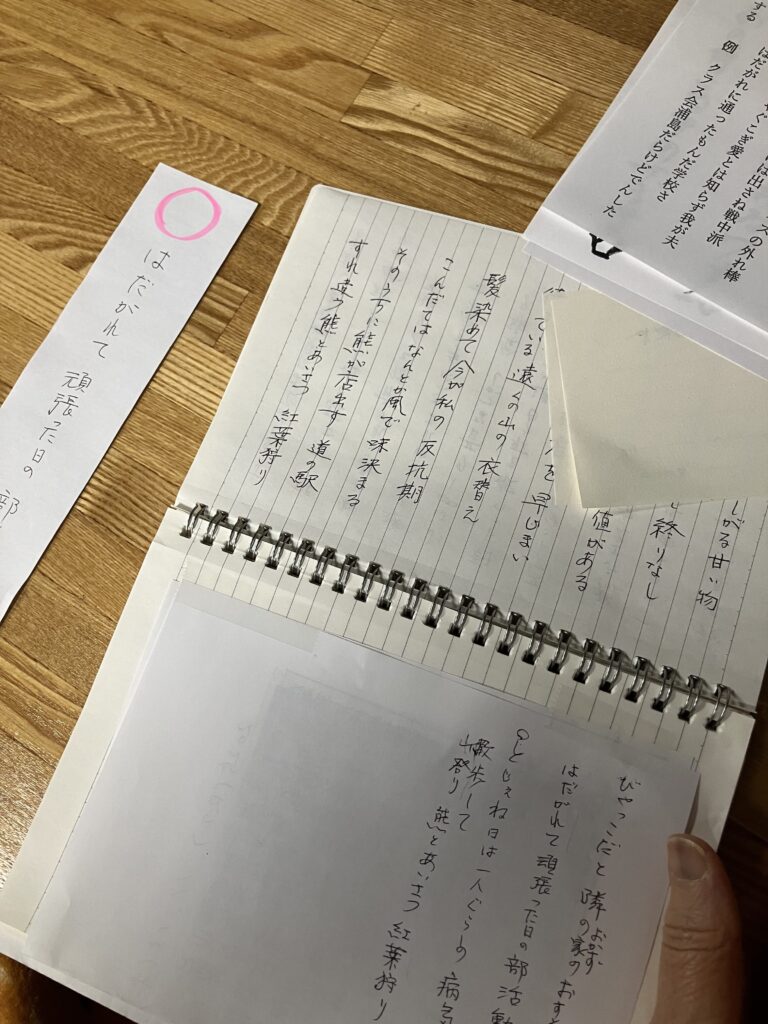 する 例 クラス会浦島だらけどでんした
はだがれに通ったもんだ学校さ
ぐこぎ愛とは知らず我が夫
は出さね戦中派
ズの外れ棒
はだがれて 頑張った日の 部
しがる甘い物
終りなし
値がある
を 早じまい
ている 遠くの山の 衣替え
髪染めて 今が私の 反抗期
こんだてはなんとか風で 味決まる
そのうちに 熊が店出す 道の駅
すれ違う 熊とあいさつ 紅葉狩り
びやっこだと 隣の家の おす
おかず
はだがれて 頑張った日の 部活動
とじぇね日は 一人ぐらしの 病気
散歩して
山登り 熊とあいさつ 紅葉狩り